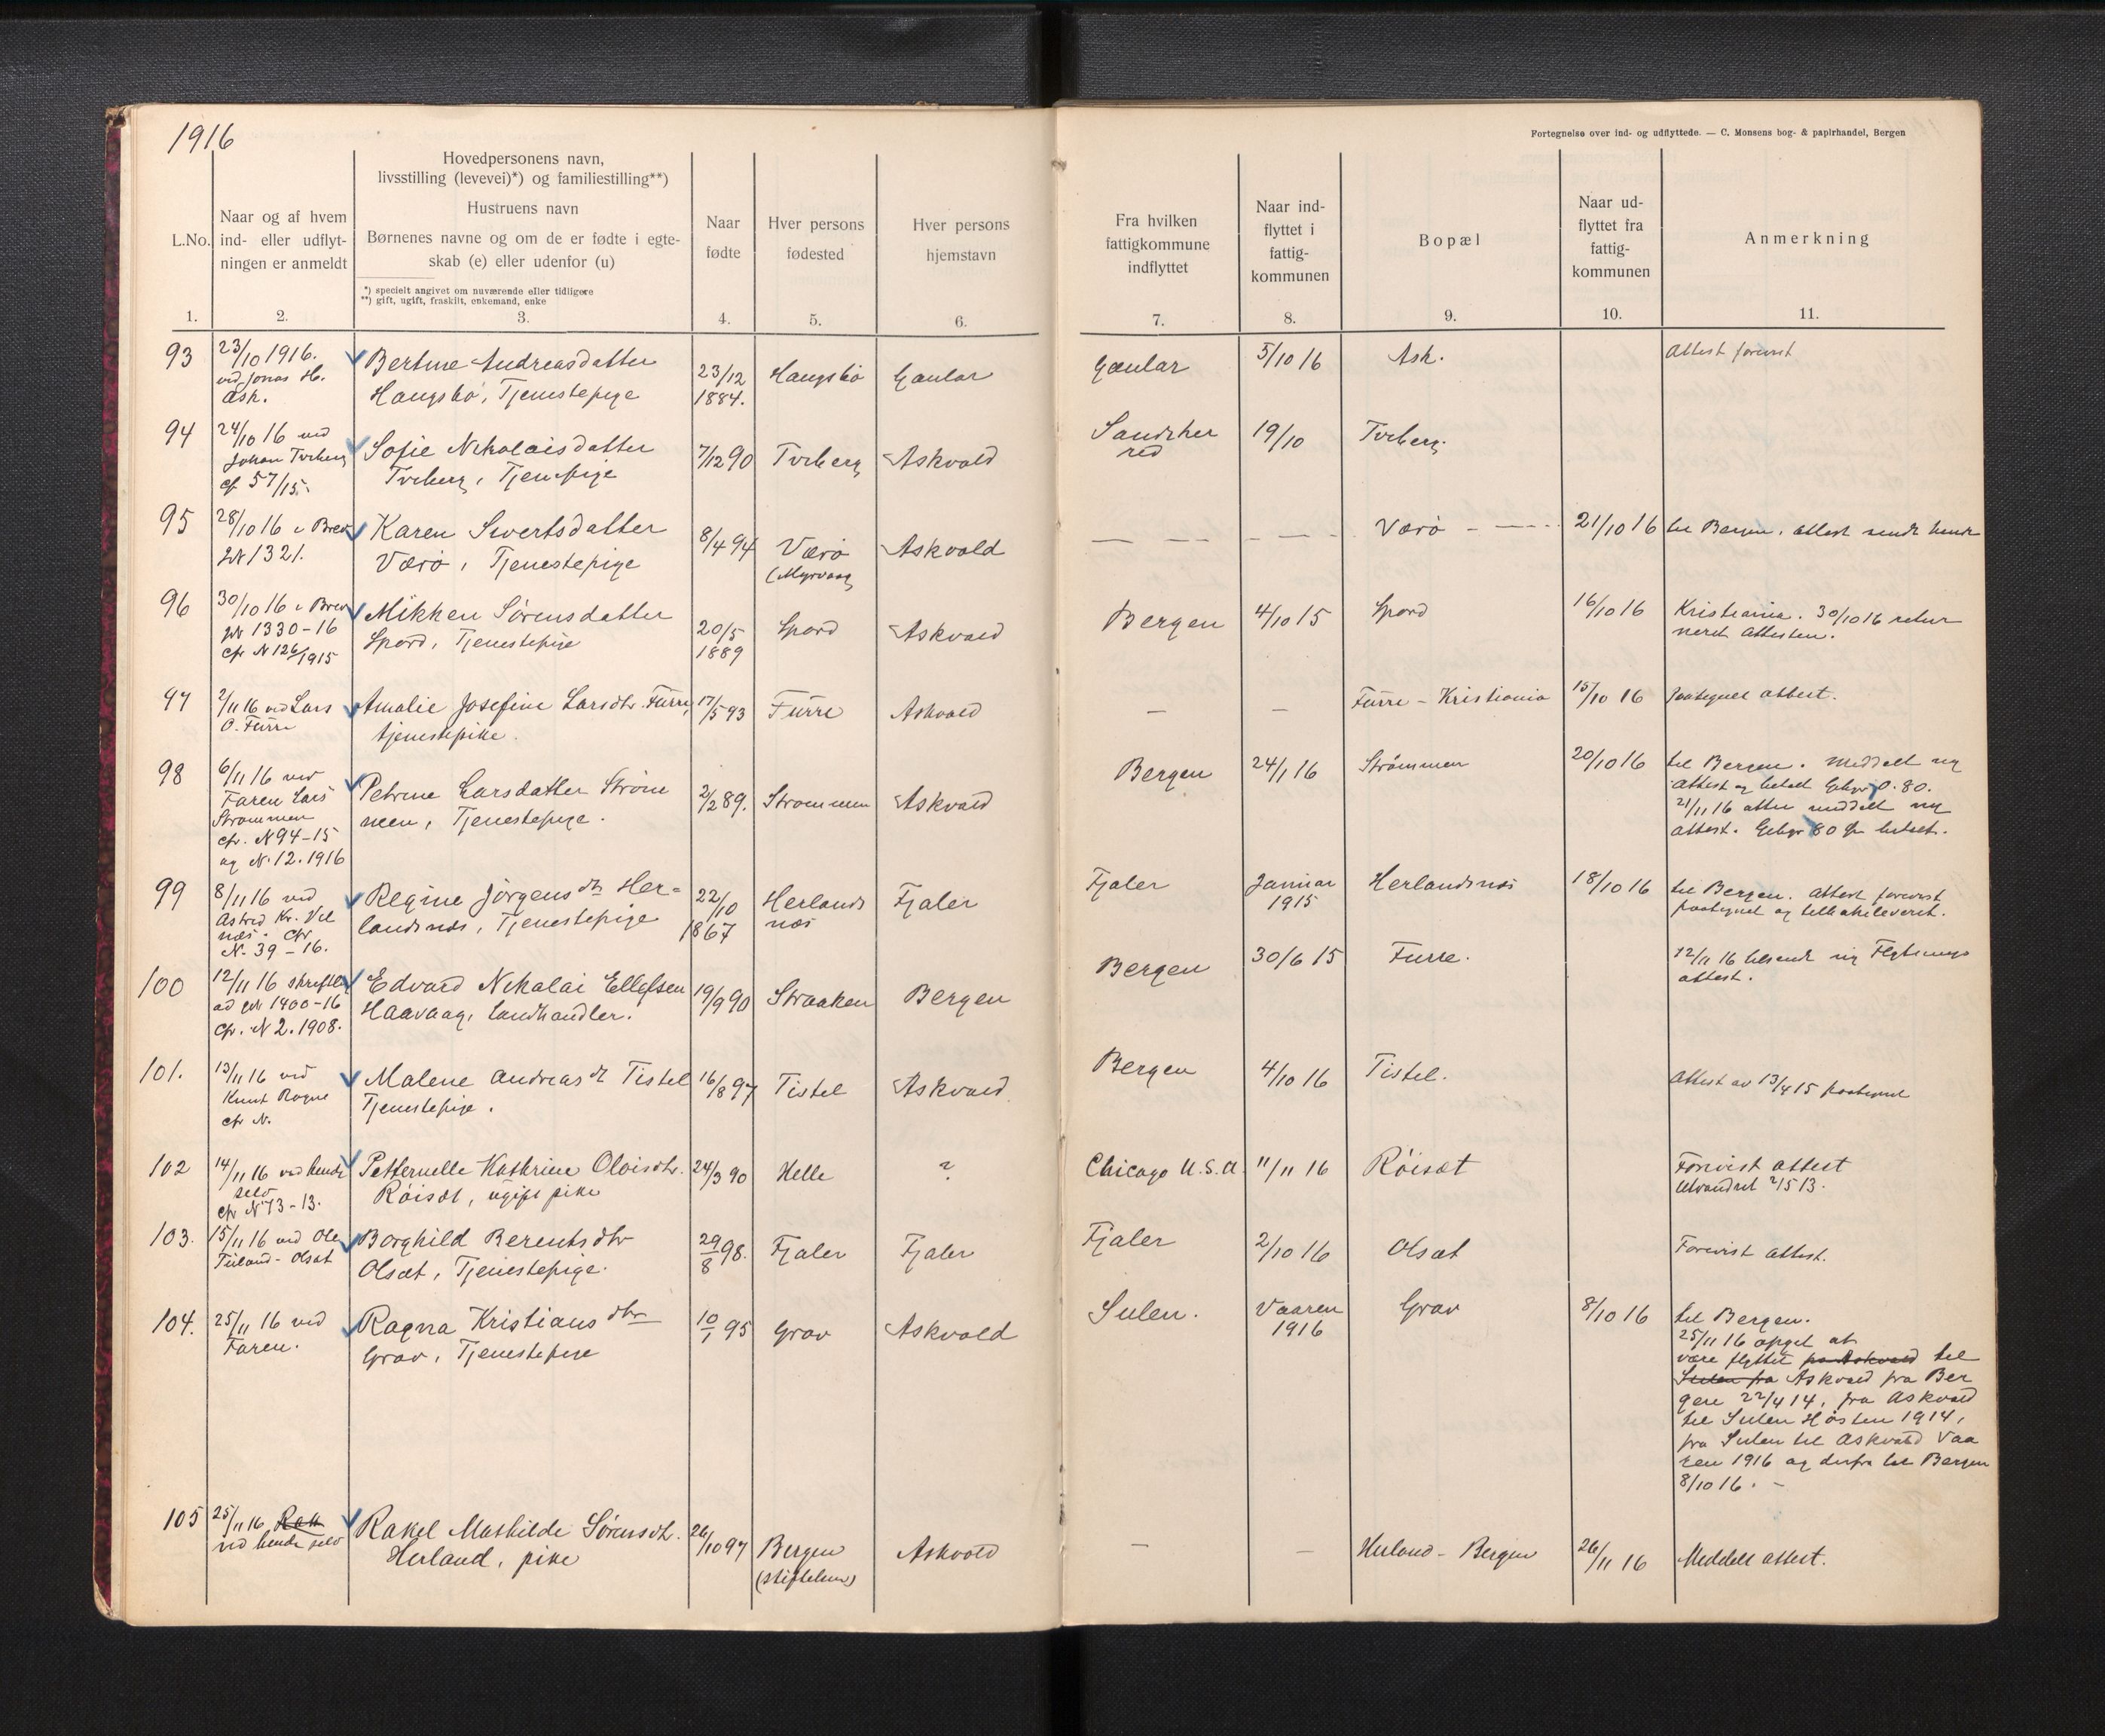 1916
Fortegnelse over ind- og udflyttede. — C. Monsens bog- & papirhandel, Bergen
L.No.
1.
Naar og af hvem
ind- eller udflyt-
ningen er anmeldt
2.
Hovedpersonens navn,
livsstilling (levevei)*) og familiestilling**)
Hustruens navn
Børnenes navne og om de er fødte i egte-
skab (e) eller udenfor (u)
*) specielt angivet om nuværende eller tidligere
**) gift, ugift, fraskilt, enkemand, enke
3.
Naar
fødte
4.
Hver persons
fødested
5.
Hver persons
hjemstavn
6.
Fra hvilken
fattigkommune
indflyttet
7.
Naar ind-
flyttet i
fattig-
kommunen
8.
Bopæl
9.
Naar ud-
flyttet fra
fattig-
kommunen
10.
Anmerkning
11.
93
23/10 1916.
ved Jonas H.
Ask.
Bertine Andreasdatter
Haugsbö, Tjenestepige
23/12
1884.
Haugsbö
Gaular
Gaular
5/10 16
Ask.
Attest forevist
94
24/10 16 ved
Johan Tviberg
cf 57/15.
Sofie Nikolaisdatter
Tviberg, Tjenepige
7/12 90
Tviberg
Askvold
Sandeher
red
19/10
Tviberg
95
28/10 16 i Brev
JN 1321.
Karen Sivertsdatter
Værö, Tjenestepige
8/4 94
Værö
(Myrvaag
Askvold
Værö
21/10 16
til Bergen, attest sendt hende
96
30/10 16 i Brev
JN 1330-16
cfr N 126/1915
Mikken Sörensdatter
Spord, Tjenestepige
20/5
1889
Spord
Askvold
Bergen
4/10 15
Spord
16/10 16
Kristiania. 30/10 16 retur
neret Attesten.
97
2/11 16 ved Lars
O. Furre
Amalie Josefine Larsdtr. Furre,
tjenestepike.
17/5 93
Furre
Askvold
—
—
Furre - Kristiania
15/10 16
paategnet attest.
98
6/11 16 ved
Faren Lars
Strømmen
cfr. N 94-15
og N. 12. 1916
Petrine Larsdatter Ström
men, Tjenestepige.
2/2 89.
Strømmen
Askvold
Bergen
24/1 16
Strömmen
20/10 16
til Bergen. Meddelt ny
attest og betalt Gebyr 0.80.
21/11 16 atter meddelt ny
attest. Gebyr 80 öre betalt.
99
8/11 16 ved
Astrid Kr. Vil
næs. cfr
N. 39-16.
Regine Jörgensdtr Her=
landsnæs, Tjenestepige
22/10
1867
Herlands
næs
Fjaler
Fjaler
Januar
1915
Herlandsnæs
18/10 16
til Bergen. Attest forevist
paategnet og tilbakeleveret.
100
12/11 16 skriftlig
ad JN 1400-16
cfr. N 2. 1908.
Edvard Nikolai Ellefsen
Haavaag, Landhandler.
19/9 90
Straaken
Bergen
Bergen
30/6 15
Furre.
12/11 16 tilsendt ny Flytnings
attest.
101.
13/11 16 ved
Knut Rogne
cfr N.
Malene Andreasdtr Tistel
Tjenestepige.
16/8 97
Tistel
Askvold
Bergen
4/10 16
Tistel.
Attest av 13/4 15 paategnet
102
14/11 16 ved hende
selv
cfr N 73-13.
Petternelle Kathrine Olaisdtr.
Röisæt, ugift pike
24/3 90
Helle
?
Chicago U.S.A.
11/11 16
Röisæt
Forevist attest
Utvandret 2/5 13.
103.
15/11 16 ved Ole
Teiland-Olsæt
Borghild Berentsdtr
Olsæt, Tjenestepige.
29/8 98.
Fjaler
Fjaler
Fjaler
2/10 16
Olsæt
Forevist attest.
104.
25/11 16 ved
Faren.
Ragna Kristiansdtr
Grov, Tjenestepige
10/1 95
Grov
Askvold
Sulen.
Vaaren
1916
Grov
8/10 16
til Bergen.
25/11 16 opgit at
være flyttet fra Askvold til
Sulen fra Askvold fra Ber
gen 22/4 14, fra Askvold
til Sulen Hösten 1914,
fra Sulen til Askvold Vaa
ren 1916 og derfra til Bergen
8/10 16. -
105
25/11 16 Rak
ved hende selv
Rakel Mathilde Sörensdtr.
Herland, pike
26/10 97
Bergen
(Stiftelsen)
Askvold
—
—
Herland - Bergen
26/11 16
Meddelt attest.